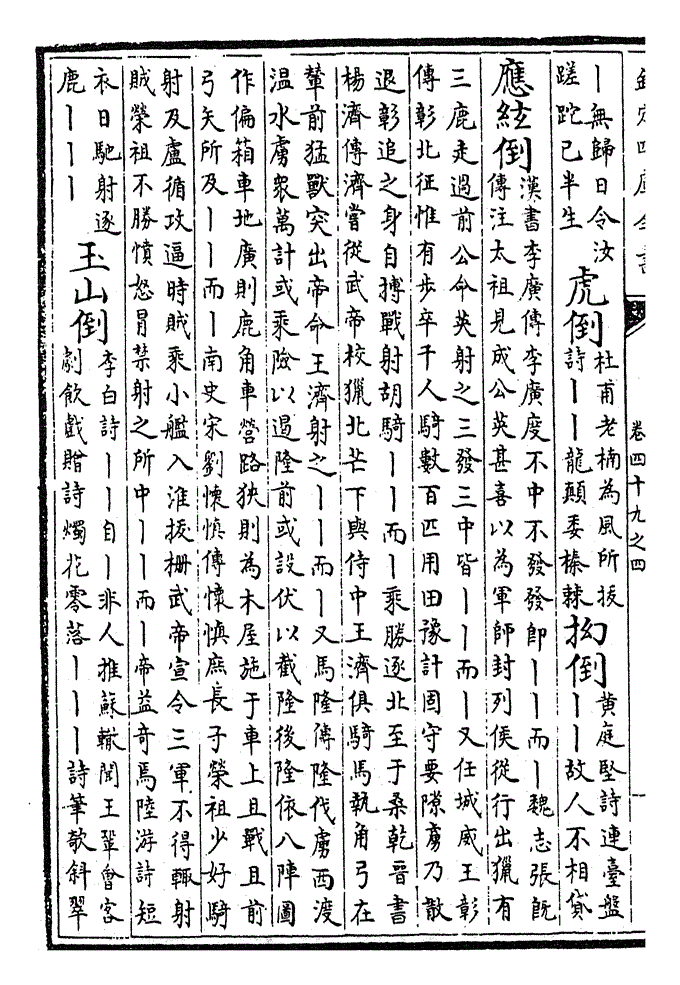 欽定四庫全書
卷四十九之四
丨無歸日令汝
蹉跎已半生
虎倒
杜甫老楠為風所拔
詩丨丨龍顛委榛棘
拗倒
黄庭堅詩連臺盤
丨丨故人不相貸
應絃倒
漢書李廣傳李廣度不中不發發即丨丨而丨魏志張既
傳注太祖見成公英甚喜以為軍師封列侯從行出獵有
三鹿走過前公命英射之三發三中皆丨丨而丨又任城威王彰
傳彰北征惟有步卒千人騎數百匹用田豫計固守要隙虜乃散
退彰追之身自搏戰射胡騎丨丨而丨乘勝逐北至于桑乾晉書
楊濟傳濟嘗從武帝校獵北芒下與侍中王濟俱騎馬執角弓在
輦前猛獸突出帝命王濟射之丨丨而丨又馬隆傳隆伐虜西渡
温水虜衆萬計或乘險以遏隆前或設伏以截隆後隆依八陣圖
作偏箱車地廣則鹿角車營路狹則為木屋施于車上且戰且前
弓矢所及丨丨而丨南史宋劉懷慎傳懷慎庶長子榮祖少好騎
射及盧循攻逼時賊乘小艦入淮拔柵武帝宣令三軍不得輒射
賊榮祖不勝憤怒冒禁射之所中丨丨而丨帝益竒焉陸游詩短
衣日馳射逐
鹿丨丨丨
玉山倒
李白詩丨丨自丨非人推蘇轍聞王鞏會客
劇飲戲贈詩燭花零落丨丨丨詩筆欹斜翠